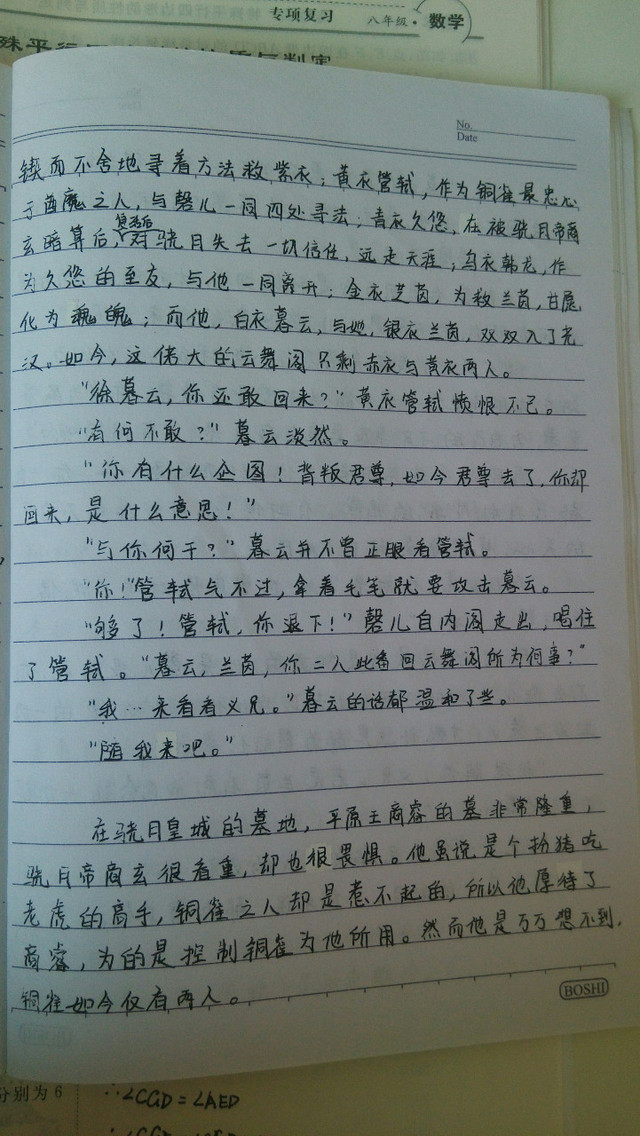 专项复习 八年级·数学
No.
Date
锲而不舍地寻着方法救紫衣；黄衣管轼，作为铜雀最忠心
于酋魔之人，与磬儿一同四处寻法；青衣久悠，在被骁月帝商
玄暗算后，复活后对骁月失去一切信任，远走天涯；乌衣韩龙，作
为久悠的至友，与他一同离开；金衣芝茵，为救兰茵，甘愿
化为魂魄；而他，白衣暮云，与她，银衣兰茵，双双入了羌
汉。如今，这偌大的云舞阁只剩赤衣与黄衣两人。
“徐暮云，你还敢回来？”黄衣管轼愤恨不已。
“有何不敢？”暮云淡然。
“你有什么企图！背叛君尊，如今君尊去了，你却
回来，是什么意思！”
“与你何干？”暮云并不曾正眼看管轼。
“你！”管轼气不过，拿着毛笔就要攻击暮云。
“够了！管轼，你退下！”磬儿自内阁走出，喝住
了管轼。“暮云，兰茵，你二人此番回云舞阁所为何事？”
“我…来看看义兄。”暮云的话都温和了些。
“随我来吧。”
在骁月皇城的墓地，平原王商睿的墓非常隆重，
骁月帝商玄很看重，却也很畏惧。他虽说是个扮猪吃
老虎的高手，铜雀之人却是惹不起的，所以他厚待了
商睿，为的是控制铜雀为他所用。然而他是万万想不到，
铜雀如今仅有两人。
BOSHI
分别为6
∴∠CGD=∠AED